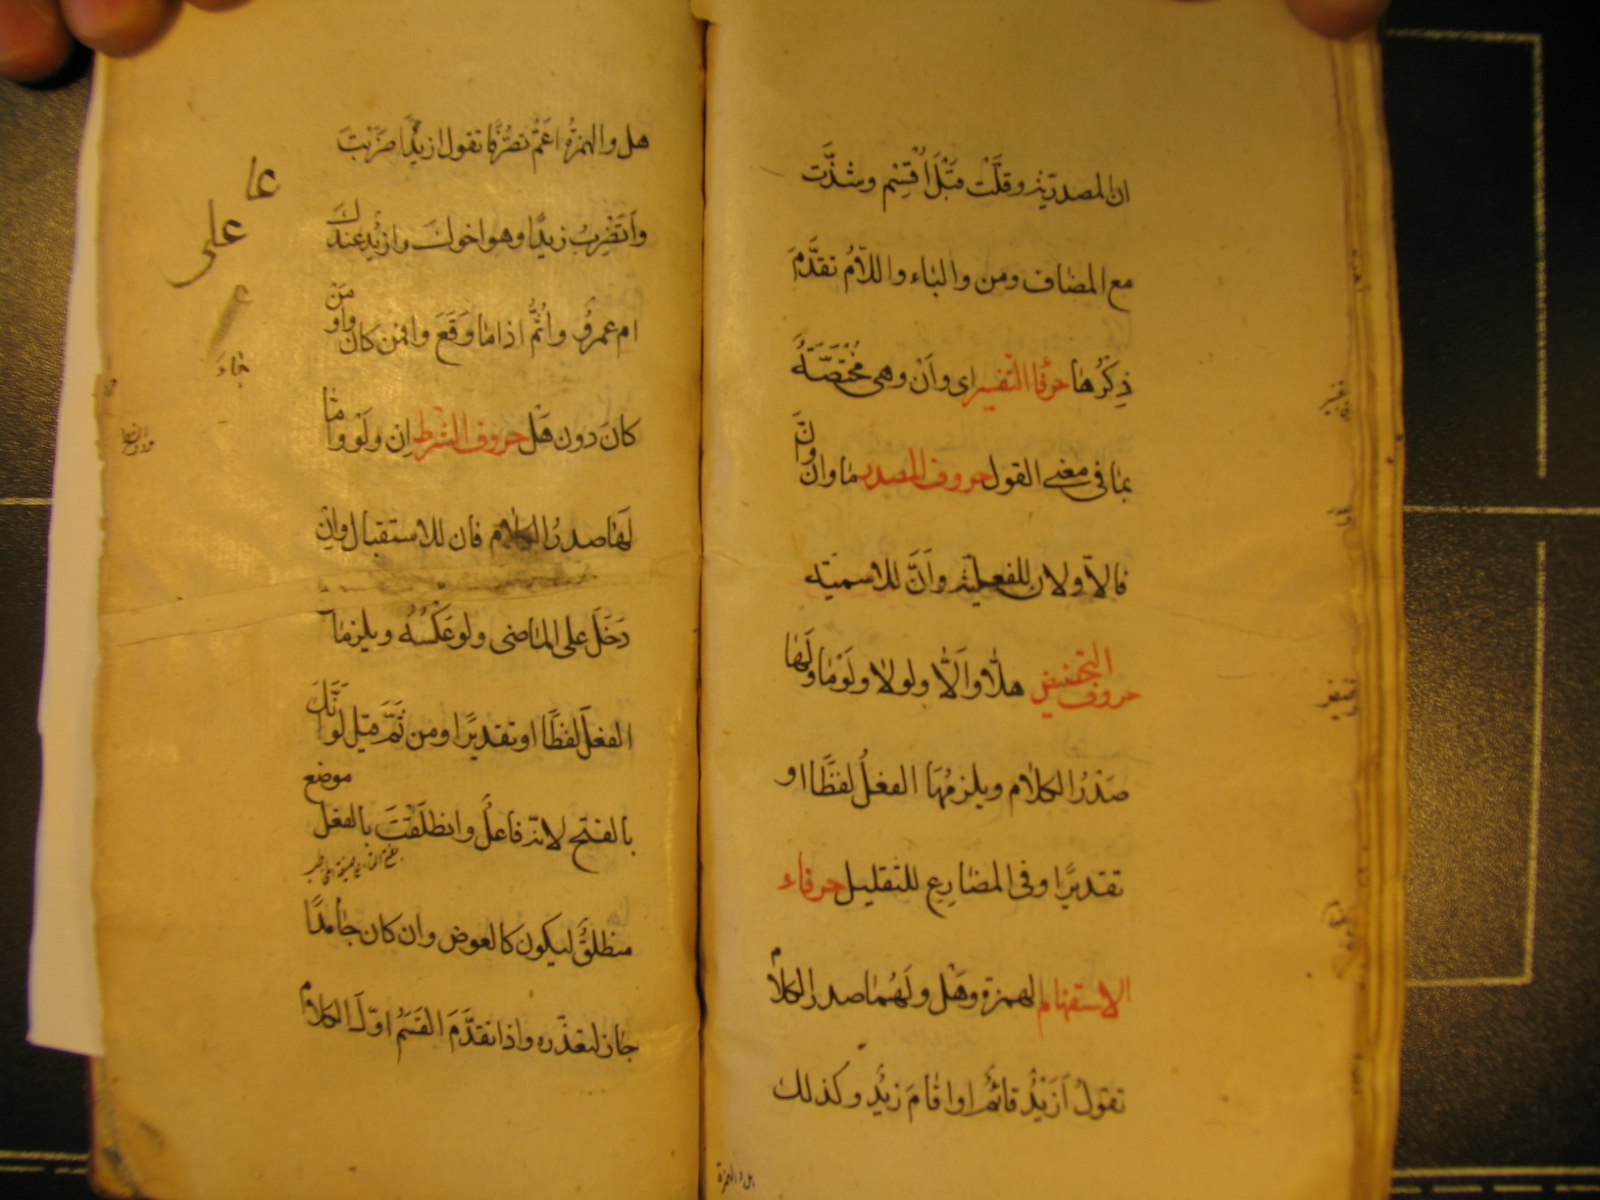 ان المصدرية وقلّت قبل اُقسم وشذّت
مع المضاف ومن والباء واللام تقدَّمَ
ذِكرُها حرفا التفسير اى وأن وهى مختصَّةٌ
بما فى معنى القول حروف المصدر ما وان وانّ
فالاولان للفعلية وأنَّ للاسمية
حروف التحضيض هلّا وألّا ولولا ولوما ولها
صَدْرُ الكلام ويلزمُها الفعلُ لفظًا او
تقديرًا وفى المضارِع للتقليل حرفاء
الاستفهام الهمزة وهل ولهما صدر الكلام
تقولُ أزيدٌ قائمٌ او اقامَ زيدٌ وكذلك
هل والهمزة
هل والهمزةُ اَعَمُّ تصرُّفًا تقول ازيدًا ضرَبْتَ
واَتَضْرِبُ زيدًا وهو اخوك وازيدٌ عندكَ
ام عمرٌو واَثُمَّ اذا ما وَقَعَ وافمن كان واومَن
كانَ دون هَل حروف الشرط اِن ولَو وامّا
لَها صدرُ الكلام فان للاستقبال وانِ
دَخَلَ على الماضى ولو عَكْسُه ويلزمان
الفعلَ لفظًا او تقديرًا ومن ثَمَّ قيل لو انّكَ
بالفتح لانّه فاعلٌ وانطلَقْتَ بالفعل موضع
منطلقٌ ليكون كالعوض وان كان جامدًا
جاز لتعذّره واذا تقدَّمَ القسَمُ اوّلَ الكلام
عا
على
جاء